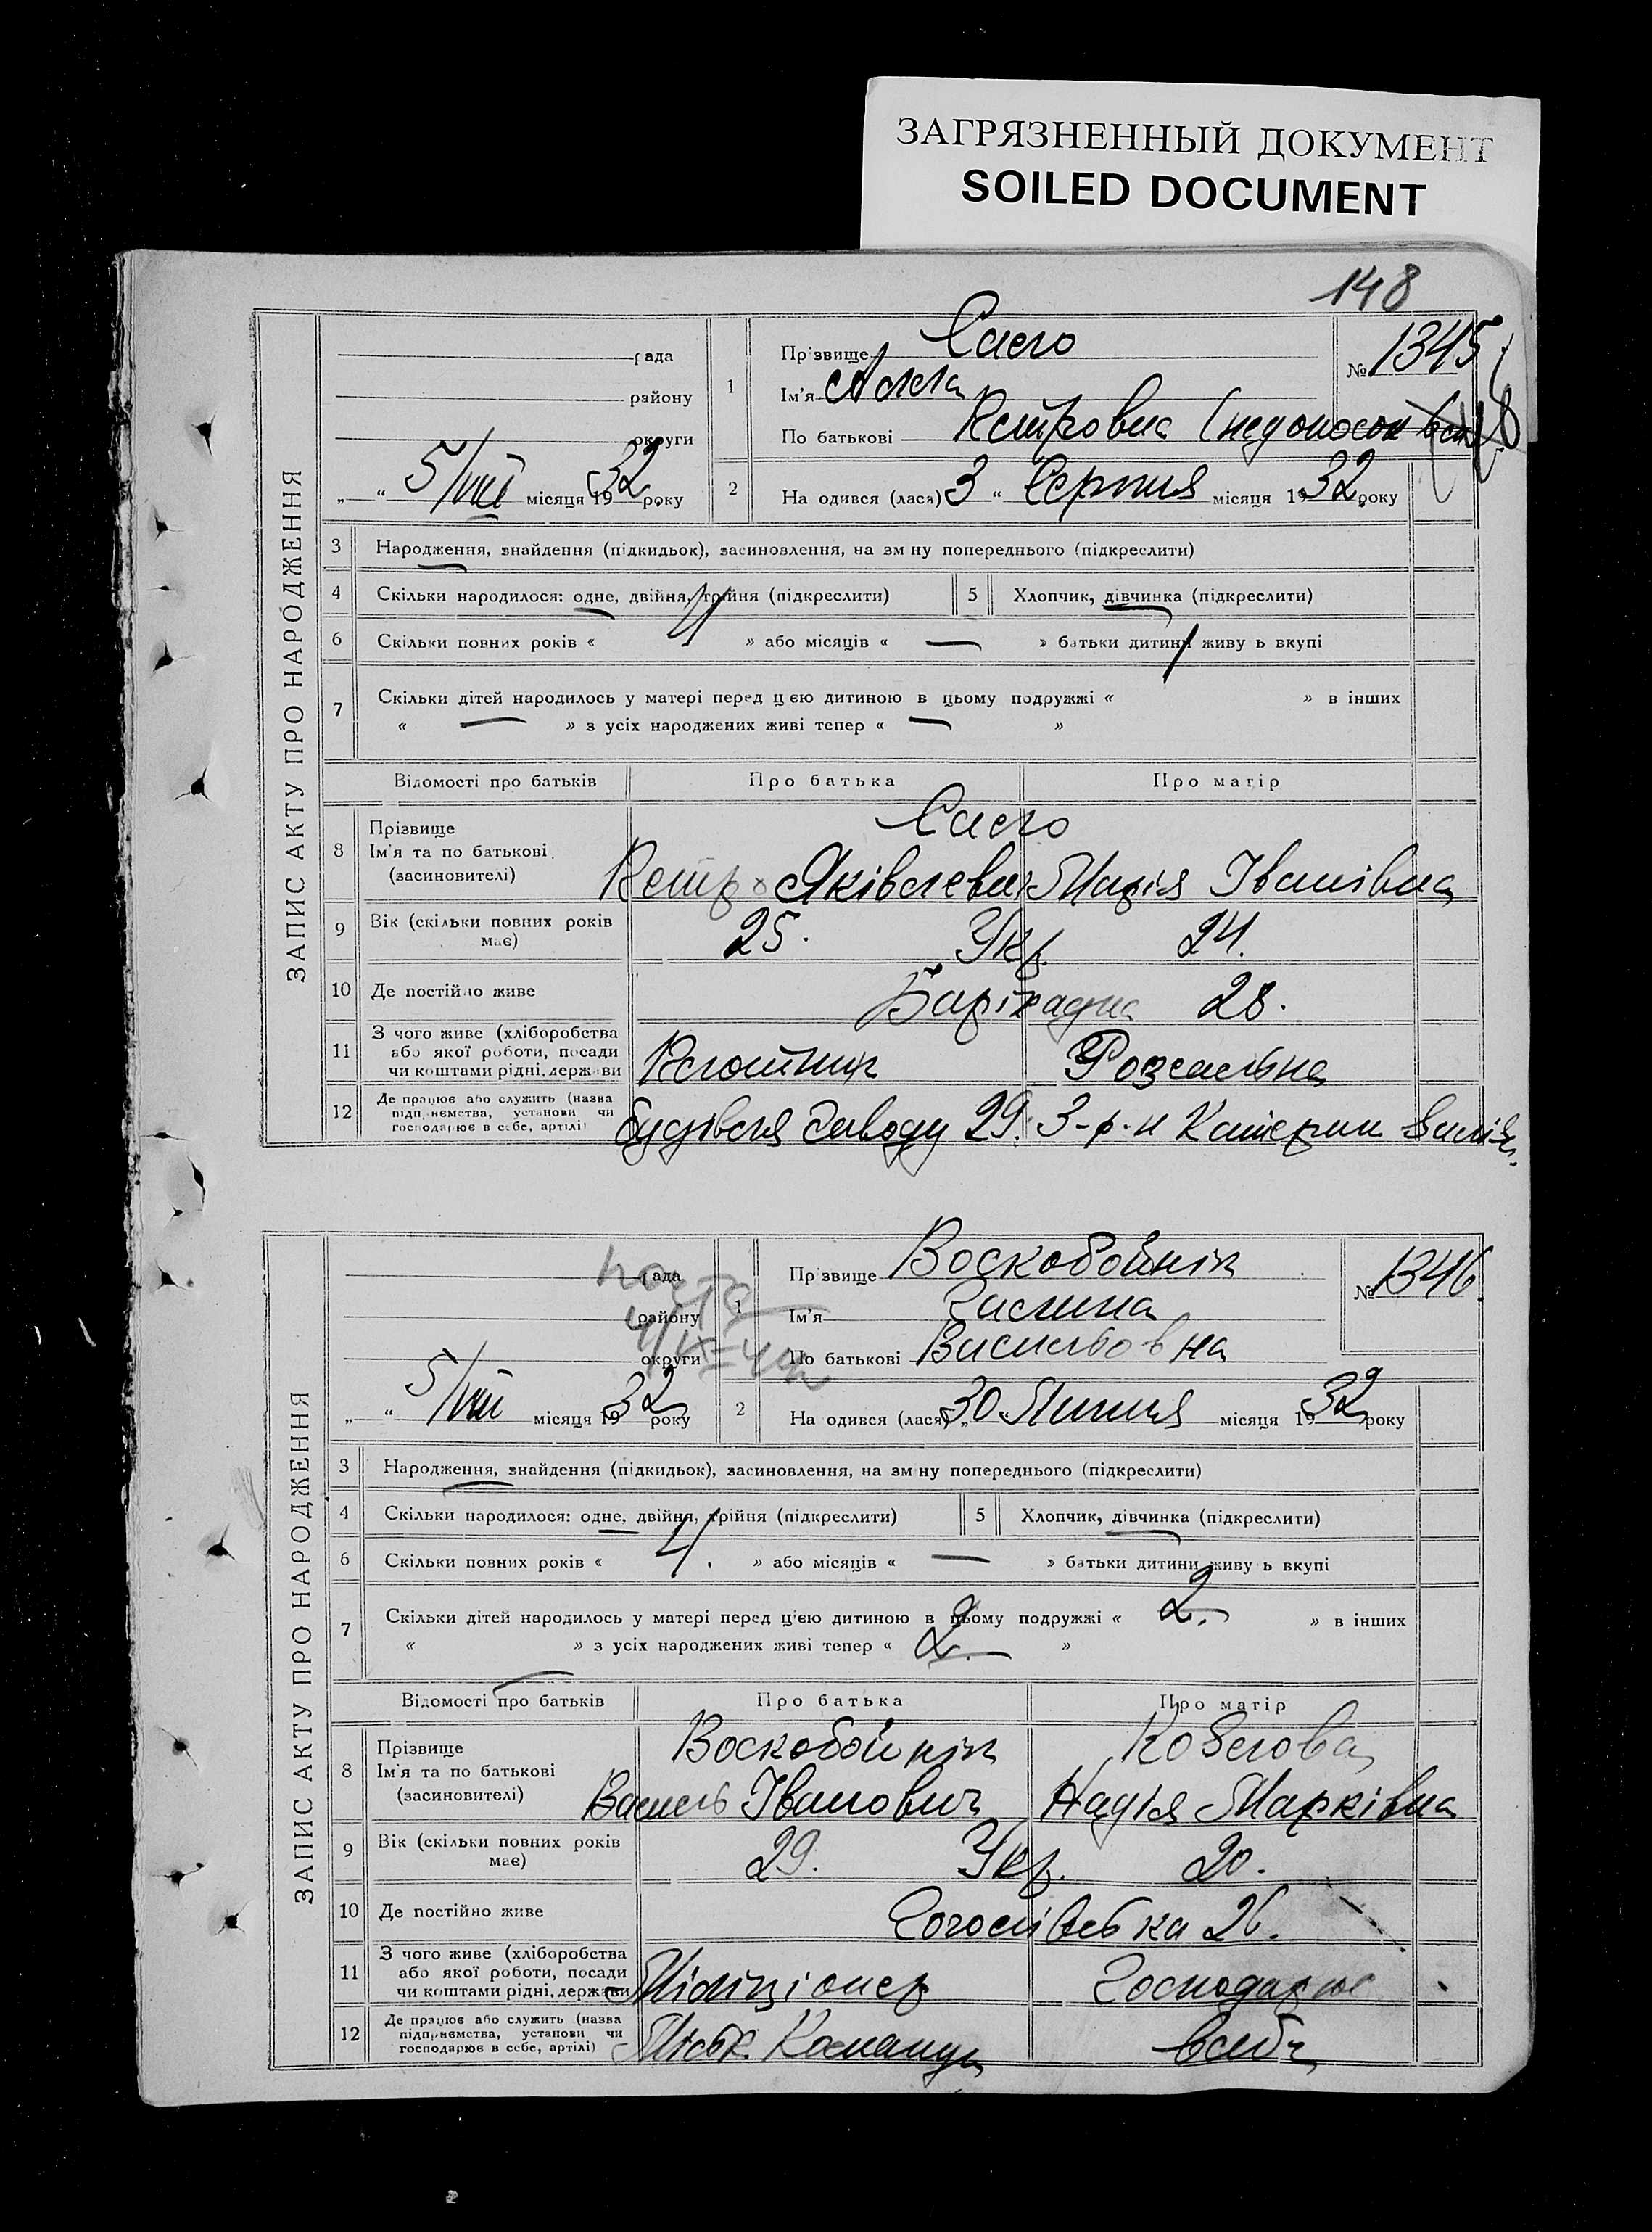 ЗАГРЯЗНЕННЫЙ ДОКУМЕНТ
SOILED DOCUMENT
148
ЗАПИС АКТУ ПРО НАРОДЖЕННЯ
рада
району
округи
„ “ 5/VIII місяця 1932 року
1
Прізвище
Ім'я Алла
По батькові Петровна (недоносок
№ 1345
2
На одився (лася) 3 “ Серпня місяця 1932 року
3 Народження, знайдення (підкидьок), засиновлення, на зм ну попереднього (підкреслити)
4 Скільки народилося: одне, двійня, трійня (підкреслити) 5 Хлопчик, дівчинка (підкреслити)
6 Скільки повних років « 4 » або місяців « — » батьки дитини живу ь вкупі
7 Скільки дітей народилось у матері перед цією дитиною в цьому подружжі « » в інших
« — » з усіх народжених живі тепер « — »
Відомості про батьків Про батька Про матір
8 Прізвище
Ім'я та по батькові
(засиновителі)
Петро Яківлевич Марія Іванівна
9 Вік (скільки повних років
має)
25. Укр. 24.
10 Де постійно живе Барікадна 28.
11 З чого живе (хліборобства
або якої роботи, посади
чи коштами рідні, держави
Плотник
12 Де працює або служить (назва
підприємства, установи чи
господарює в себе, артілі)
будівля заводу 29. З-р-н Катерин
ЗАПИС АКТУ ПРО НАРОДЖЕННЯ
рада
району
округи
„ “ 5/VIII місяця 1932 року
1
Прізвище Воскобойнік
Ім'я Галина
По батькові Васильовна
№ 1346.
2
На одився (лася) „30 Липня місяця 1932 року
3 Народження, знайдення (підкидьок), засиновлення, на зм ну попереднього (підкреслити)
4 Скільки народилося: одне, двійня, трійня (підкреслити) 5 Хлопчик, дівчинка (підкреслити)
6 Скільки повних років « 4. » або місяців « — » батьки дитини живу ь вкупі
7 Скільки дітей народилось у матері перед цією дитиною в цьому подружжі « 2. » в інших
« » з усіх народжених живі тепер « 2. »
Відомості про батьків Про батька Про матір
8 Прізвище
Ім'я та по батькові
(засиновителі)
Воскобойнік
Василь Іванович Надія Марківна
9 Вік (скільки повних років
має)
29. Укр. 20.
10 Де постійно живе 26.
11 З чого живе (хліборобства
або якої роботи, посади
чи коштами рідні, держави
Міліціонер Господарює
12 Де працює або служить (назва
підприємства, установи чи
господарює в себе, артілі)
Міськ. Команда всебе